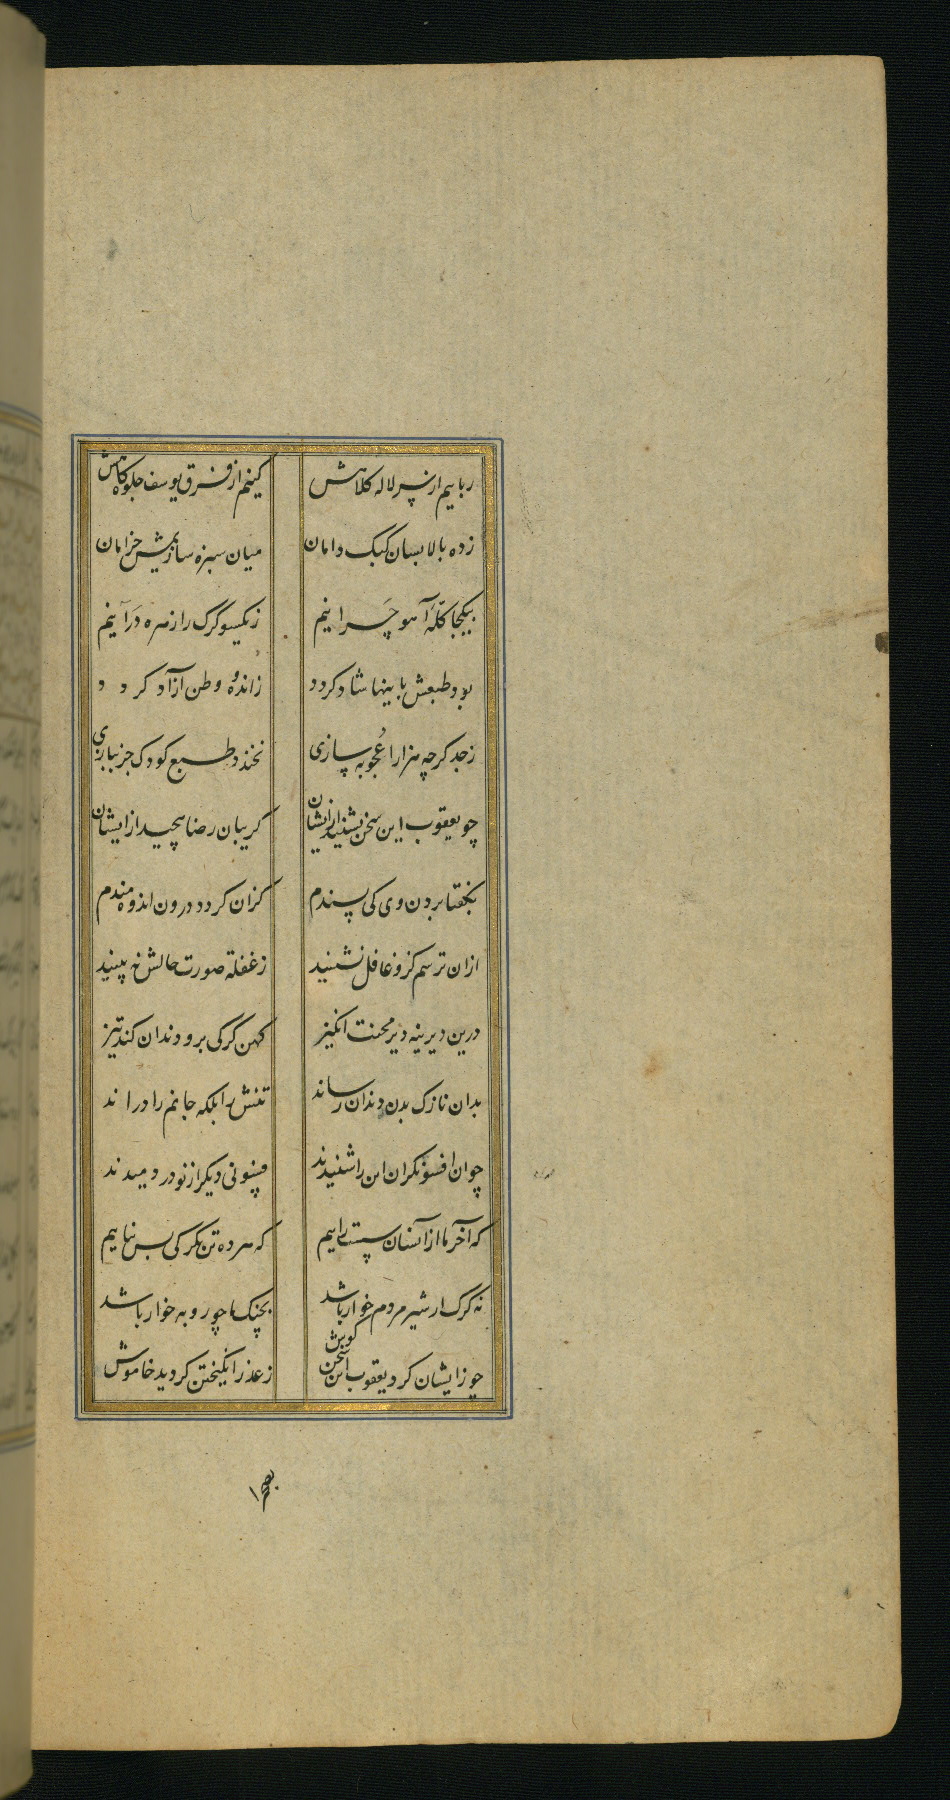 رباییم از سر لاله کلاهش کنیم از فرق یوسف جلوه گاهش
زده بالا بسان کبک دامان میان سبزه سازیمش خرامان
بیکجا کلهٔ آهو چرانیم ز یکسو کرک را از مره درآنیم
بود طبعش باینها شاد کردد ز اندوه وطن آزاد کردد
ز جد کرچه هزار اعجوبه سازی نخندد طبع کودک جز ببازی
چو یعقوب این سخن بشنید ازیشان کریبان رضا پیچید از ایشان
بکفتا بردن وی کی پسندم کزان کردد درون اندوه مندم
ازان ترسم کزو غافل نشینید ز غفلة صورت حالش نه بینید
درین دیرینه دیر محنت انکیز کهن کرکی برو دندان کند تیز
بدان نازک بدن دندان رساند تنش را بلکه جانم را دراند
چو ان افسونکران این را شنیدند فسونی دیکر از نو در دمیدند
که آخر ما ازآنسان سست راییم که هر ده تن بکرکی بس نیاییم
نه کرک ار شیر مردم خوار باشد بچنک ما چو روبه خوار باشد
چو زایشان کرد یعقوب این سخن کوش ز عذر انکیختن کردید خاموش